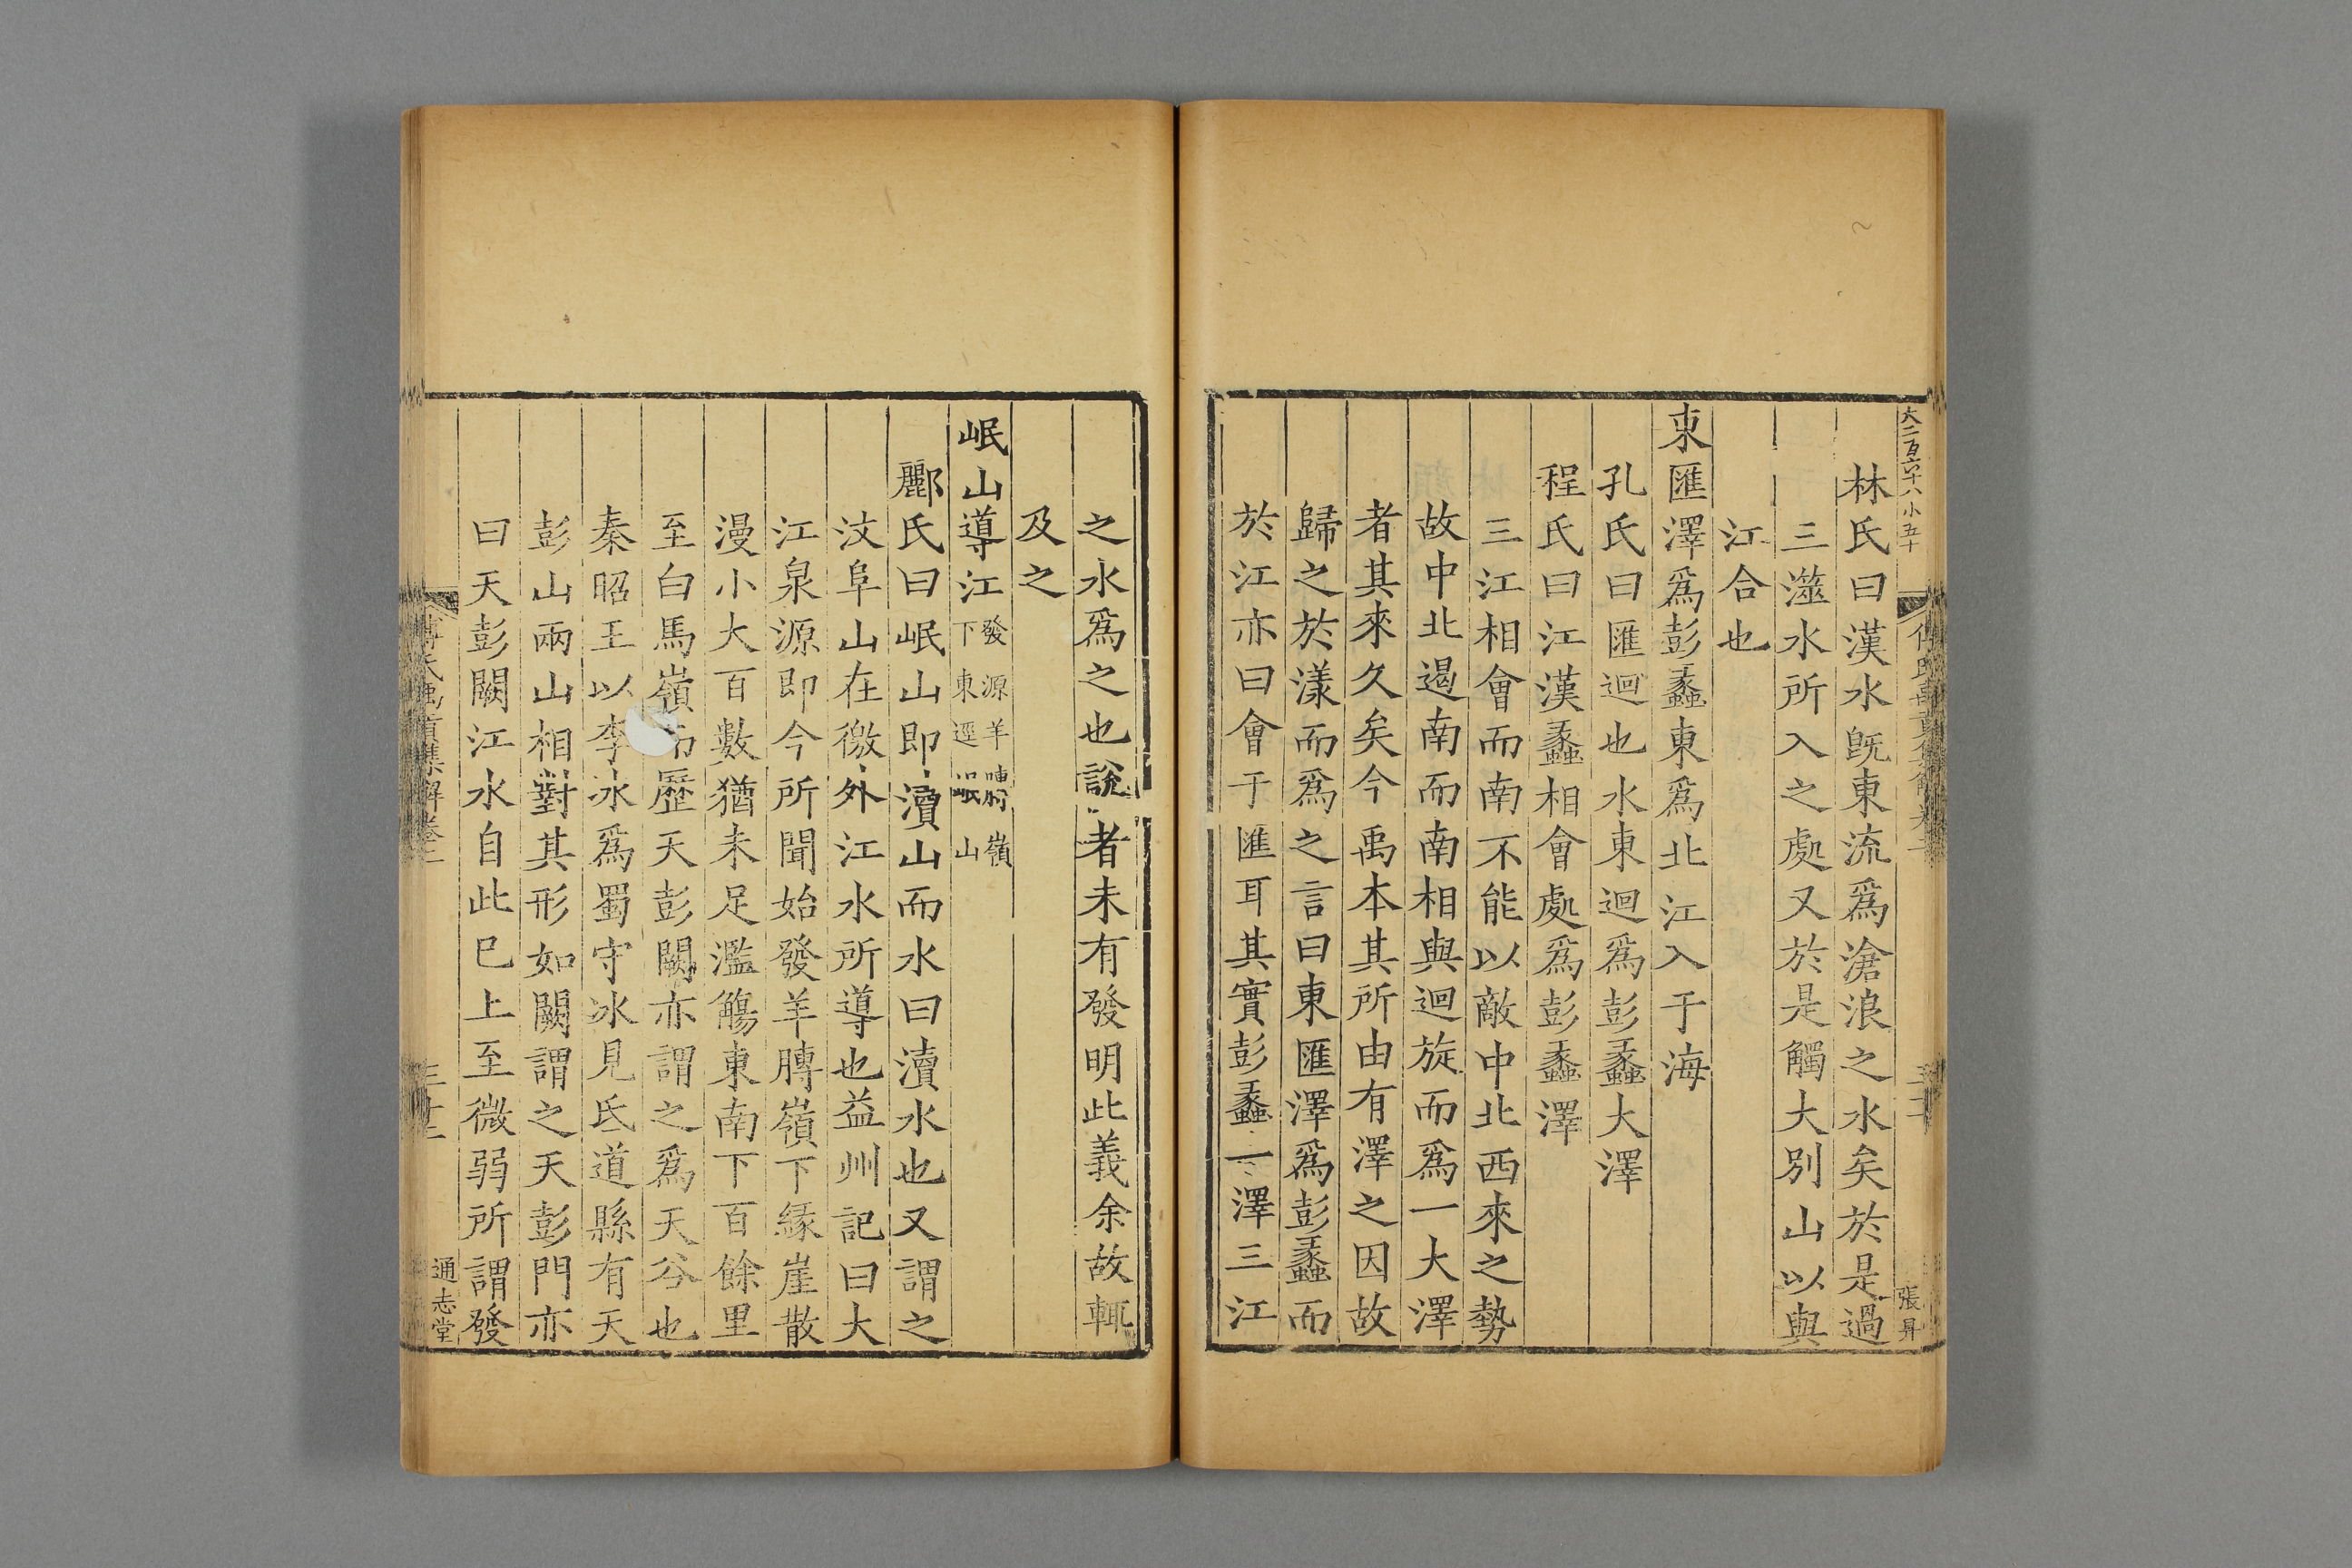 大二百六十八小五十
張昇
林氏曰漢水旣東流爲滄浪之水矣於是過
三澨水所入之處又於是觸大別山以與
江合也
東匯澤爲彭蠡東爲北江入于海
孔氏曰匯迴也水東迴爲彭蠡大澤
程氏曰江漢蠡相會處爲彭蠡澤
三江相會而南不能以敵中北西來之勢
故中北遏南而南相與迴旋而爲一大澤
者其來久矣今禹本其所由有澤之因故
歸之於漾而爲之言曰東匯澤爲彭蠡而
於江亦曰會于匯耳其實彭蠡一澤三江
之水爲之也說者未有發明此義余故輒
及之
岷山導江發源羊膊嶺下東逕岷山
酈氏曰岷山即瀆山而水曰瀆水也又謂之
汶阜山在徼外江水所導也益州記曰大
江泉源即今所聞始發羊膊嶺下緣崖散
漫小大百數猶未足濫觴東南下百餘里
至白馬嶺歷天彭闕亦謂之爲天谷也
秦昭王以李冰爲蜀守冰見氐道縣有天
彭山兩山相對其形如闕謂之天彭門亦
曰天彭闕江水自此巳上至微弱所謂發
禹貢集解卷二
三十三
通志堂